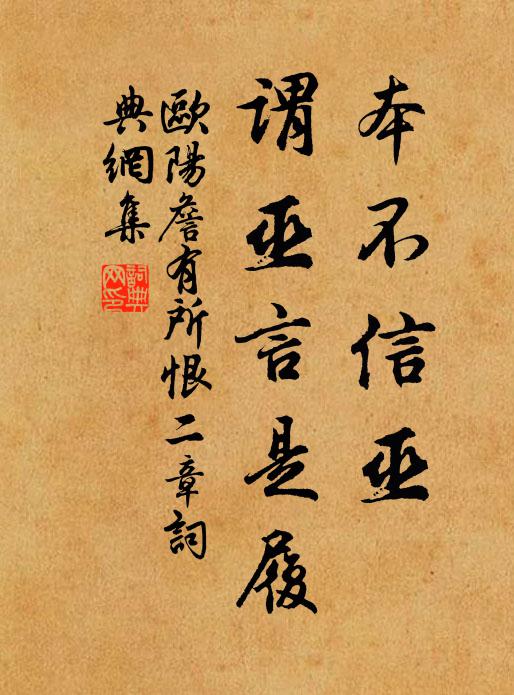 本不信巫
謂巫言是履
歐陽詹有所恨二章詞
典網集
詞典
网印